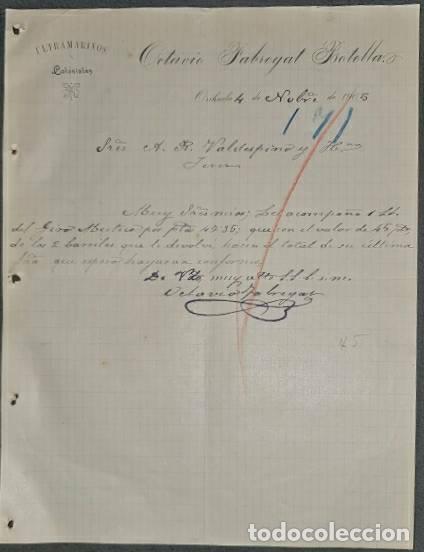 ULTRAMARINOS
Y
Coloniales
Octavio Fabregat Rotolla
4 de Nobre de 1905
Sres A. R. Valdespino y Hno
Jerez
Muy Sres mios: Les acompaño 1 Lb.
del Giro Mutuo por pta 49'35; que con el valor de 45 Pts
de los 2 barriles que le devolví hacen el total de su última
fra que espero hayaran conforme
De Vds muy atto S.S. b.s.m.
Octavio Fabregat
45
todocoleccion.net